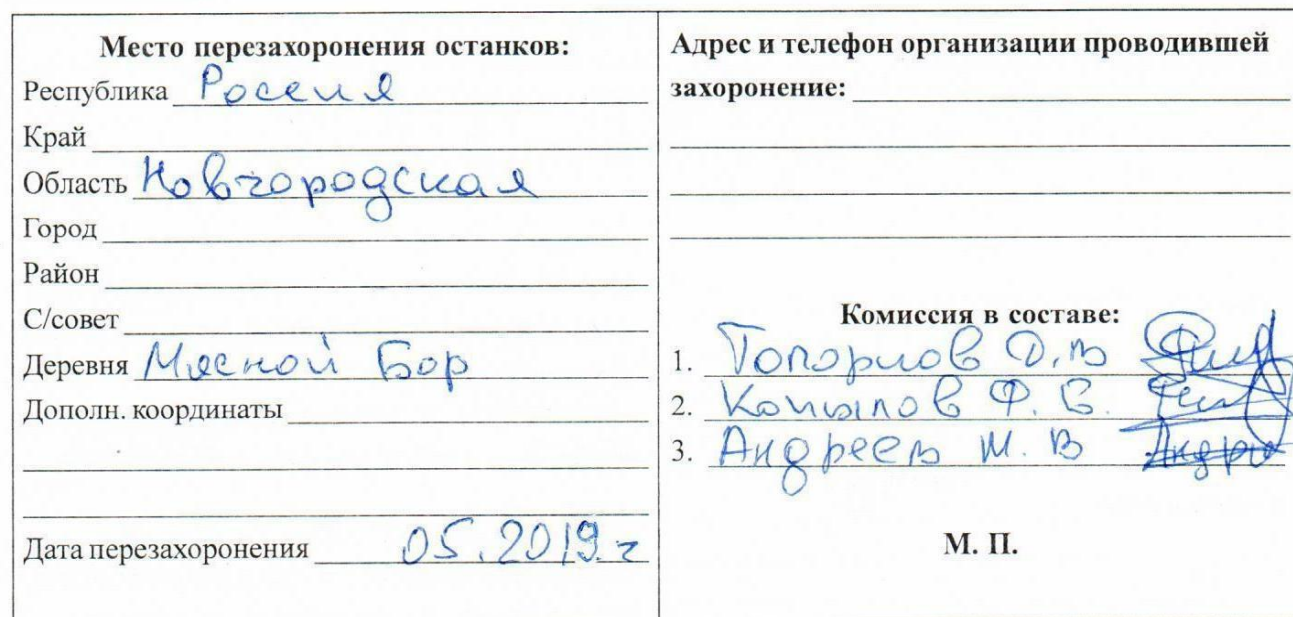 Место перезахоронения останков:
Республика Россия
Край
Область Новгородская
Город
Район
С/совет
Деревня Мясной Бор
Дополн. координаты
Дата перезахоронения 05.2019 г
Адрес и телефон организации проводившей
захоронение:
Комиссия в составе:
1. Топорков Д.В
2. Копылов Ф. С.
3. Андреев М. В
М. П.